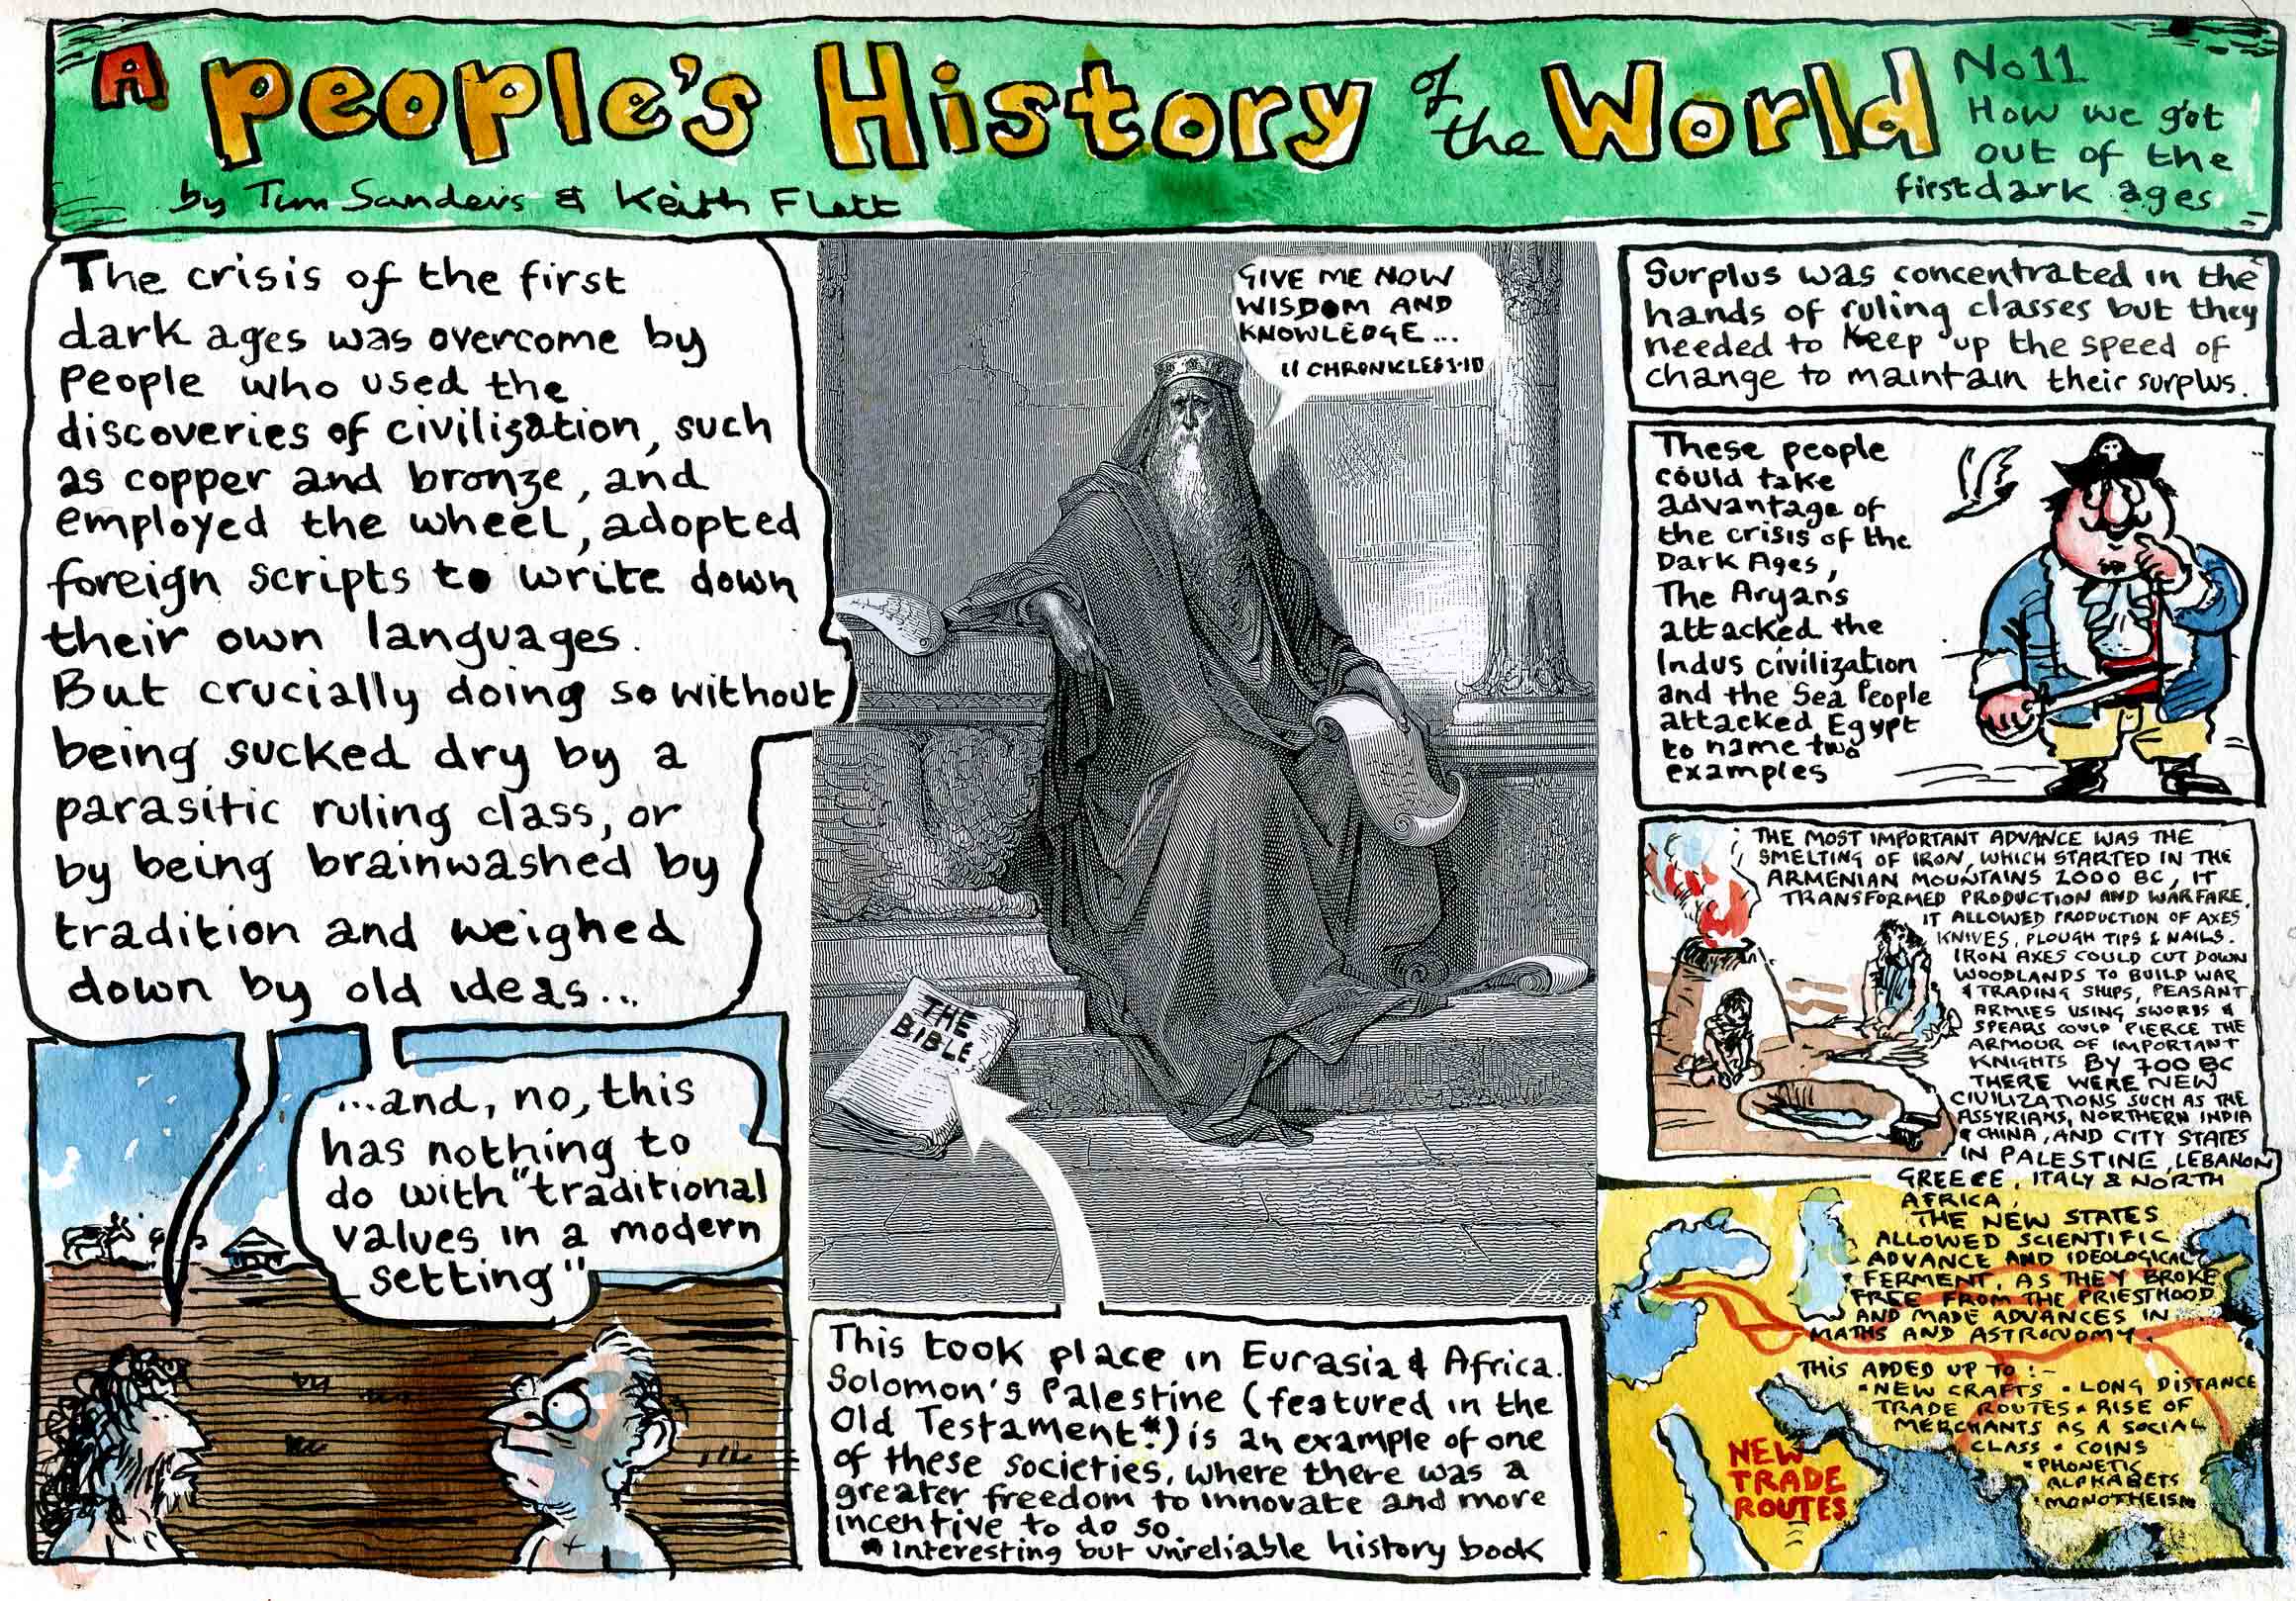 A People's History of the World
No11
How we got
out of the
first dark ages
by Tim Sanders & Keith Flett
The crisis of the first
dark ages was overcome by
people who used the
discoveries of civilization, such
as copper and bronze, and
employed the wheel, adopted
foreign scripts to write down
their own languages.
But crucially doing so without
being sucked dry by a
parasitic ruling class, or
by being brainwashed by
tradition and weighed
down by old ideas...
...and, no, this
has nothing to
do with "traditional
values in a modern
setting"
GIVE ME NOW
WISDOM AND
KNOWLEDGE...
II CHRONICLES 1·10
THE
BIBLE
This took place in Eurasia & Africa.
Solomon's Palestine (featured in the
Old Testament*) is an example of one
of these societies, where there was a
greater freedom to innovate and more
incentive to do so.
* Interesting but unreliable history book
Surplus was concentrated in the
hands of ruling classes but they
needed to keep up the speed of
change to maintain their surplus.
These people
could take
advantage of
the crisis of the
Dark Ages,
The Aryans
attacked the
Indus civilization
and the Sea People
attacked Egypt
to name two
examples
THE MOST IMPORTANT ADVANCE WAS THE
SMELTING OF IRON, WHICH STARTED IN THE
ARMENIAN MOUNTAINS 2000 BC, IT
TRANSFORMED PRODUCTION AND WARFARE,
IT ALLOWED PRODUCTION OF AXES
KNIVES, PLOUGH TIPS & NAILS.
IRON AXES COULD CUT DOWN
WOODLANDS TO BUILD WAR
& TRADING SHIPS, PEASANT
ARMIES USING SWORDS &
SPEARS COULD PIERCE THE
ARMOUR OF IMPORTANT
KNIGHTS BY 700 BC
THERE WERE NEW
CIVILIZATIONS SUCH AS THE
ASSYRIANS, NORTHERN INDIA
& CHINA, AND CITY STATES
IN PALESTINE, LEBANON
GREECE, ITALY & NORTH
AFRICA,
THE NEW STATES
ALLOWED SCIENTIFIC
ADVANCE AND IDEOLOGICAL
FERMENT, AS THEY BROKE
FREE FROM THE PRIESTHOOD
AND MADE ADVANCES IN
MATHS AND ASTRONOMY.
THIS ADDED UP TO :-
• NEW CRAFTS • LONG DISTANCE
TRADE ROUTES • RISE OF
MERCHANTS AS A SOCIAL
CLASS • COINS
• PHONETIC
ALPHABETS
• MONOTHEISM
NEW
TRADE
ROUTES